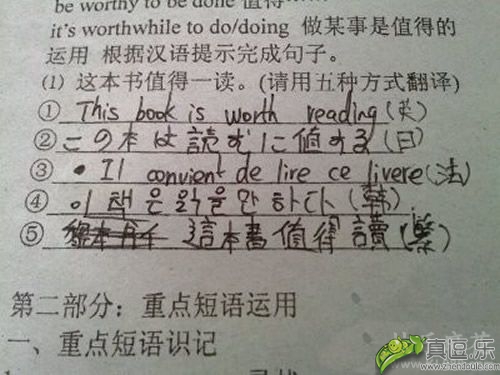 be worthy to be done 值得
it's worthwhile to do/doing 做某事是值得的
运用 根据汉语提示完成句子。
(1) 这本书值得一读。(请用五种方式翻译)
① This book is worth reading (英)
② この本は読むに値する(日)
③ • Il convient de lire ce livere (法)
④ 이 책은 읽을만 하다 (韩)
⑤ 這本書值得讀(繁)
第二部分：重点短语运用
一、重点短语识记
真逗乐
www.zhendoule.com